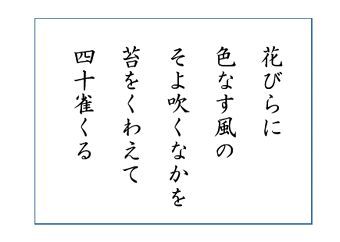 花びらに
色なす風の
そよ吹くなかを
苔をくわえて
四十雀くる